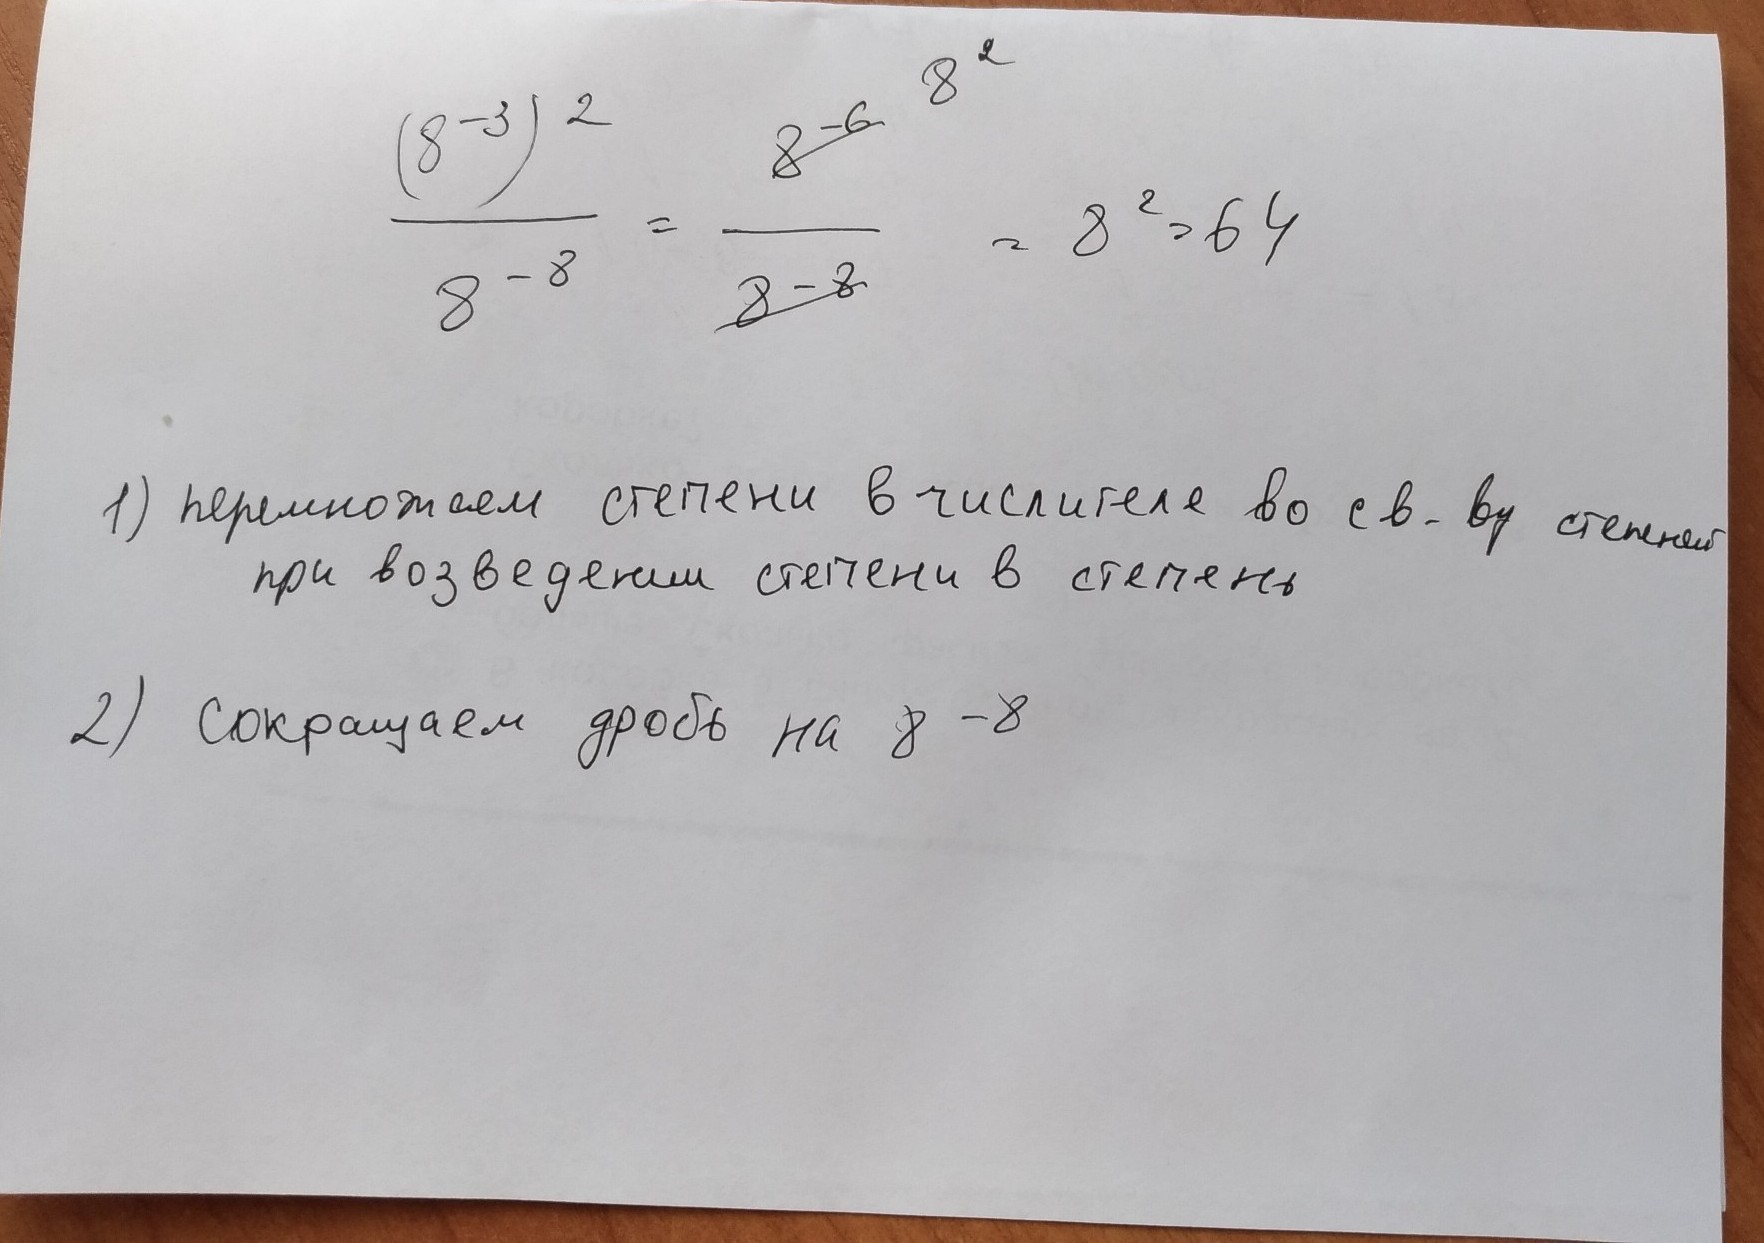 (8^-3)^2 / 8^-8 = 8^-6 8^2 / 8^-8 = 8^2 = 64
1) перемножаем степени в числителе во св-ву степеней
при возведении степени в степень
2) Сокращаем дробь на 8^-8